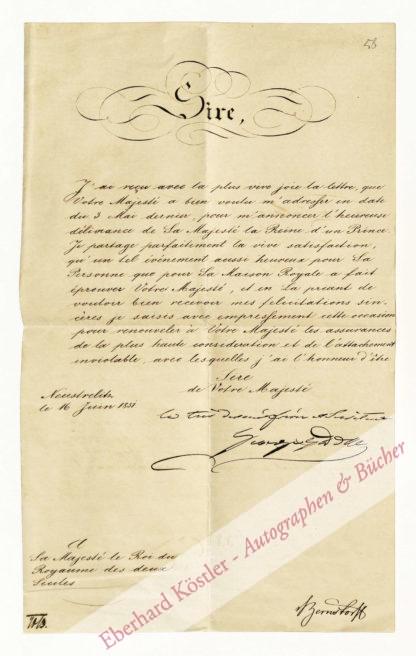 56
Sire,
J'ai reçu avec la plus vive joie la lettre, que
Votre Majesté a bien voulu m'adresser en date
du 3 Mai dernier, pour m'annoncer l'heureuse
délivrance de Sa Majesté la Reine d'un Prince.
Je partage parfaitement la vive satisfaction,
qu'un tel événement aussi heureux pour Sa
Personne que pour Sa Maison Royale a fait
éprouver Votre Majesté, et en La priant de
vouloir bien recevoir mes félicitations sin-
cères je saisis avec empressement cette occasion
pour renouveler à Votre Majesté les assurances
de la plus haute considération et de l'attachement
inviolable, avec lesquelles j'ai l'honneur d'être
Sire
de Votre Majesté
Neustrelitz
le 16 Juin 1851
le très dévoué frère et Serviteur
George
A
Sa Majesté le Roi du
Royaume des deux
Siciles
Bernstorff
Eberhard Köstler - Autographen & Bücher